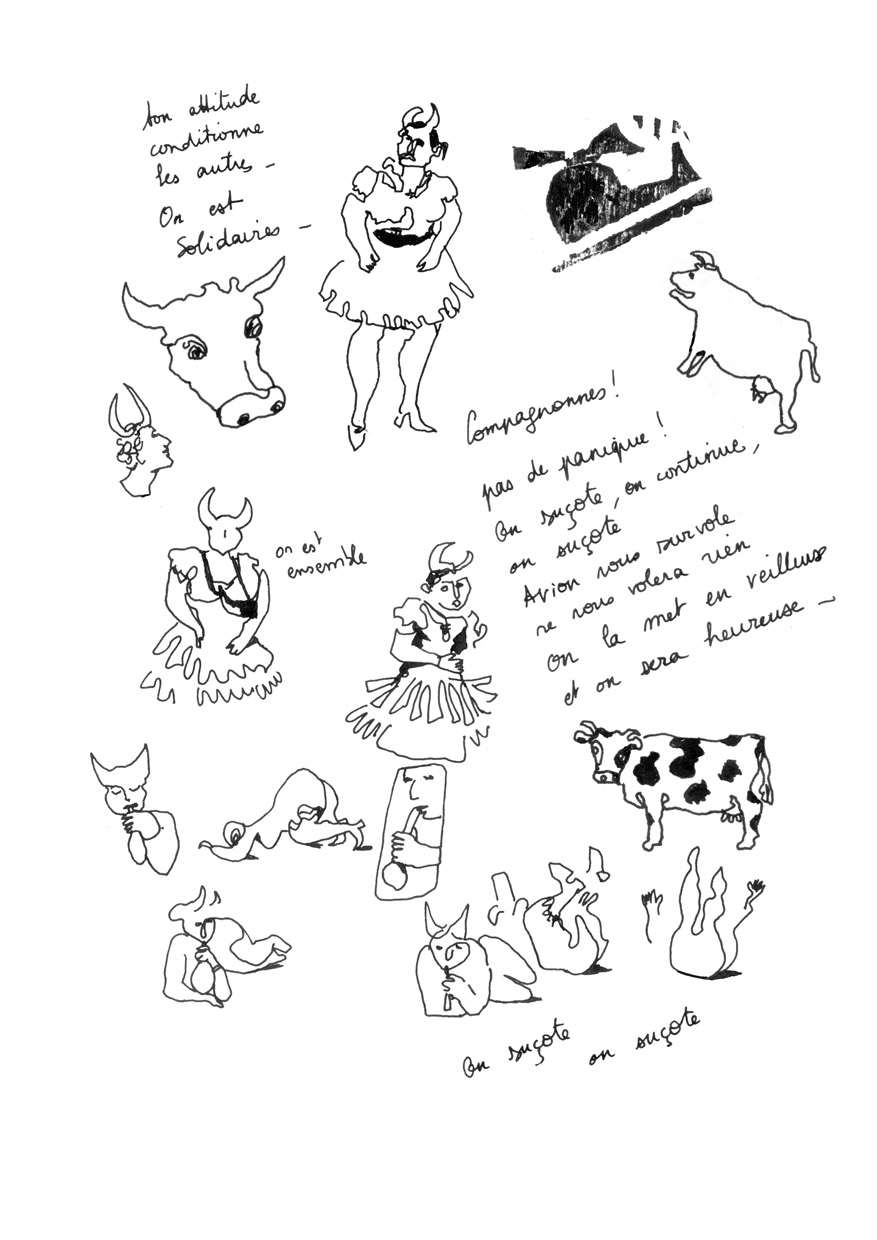 ton attitude
conditionne
les autres -
On est
Solidaires -
Compagnonnes !
pas de panique !
On suçote, on continue,
on suçote
Avion nous survole
ne nous volera rien
On la met en veilleuse
et on sera heureuse -
on est
ensemble
On suçote on suçote